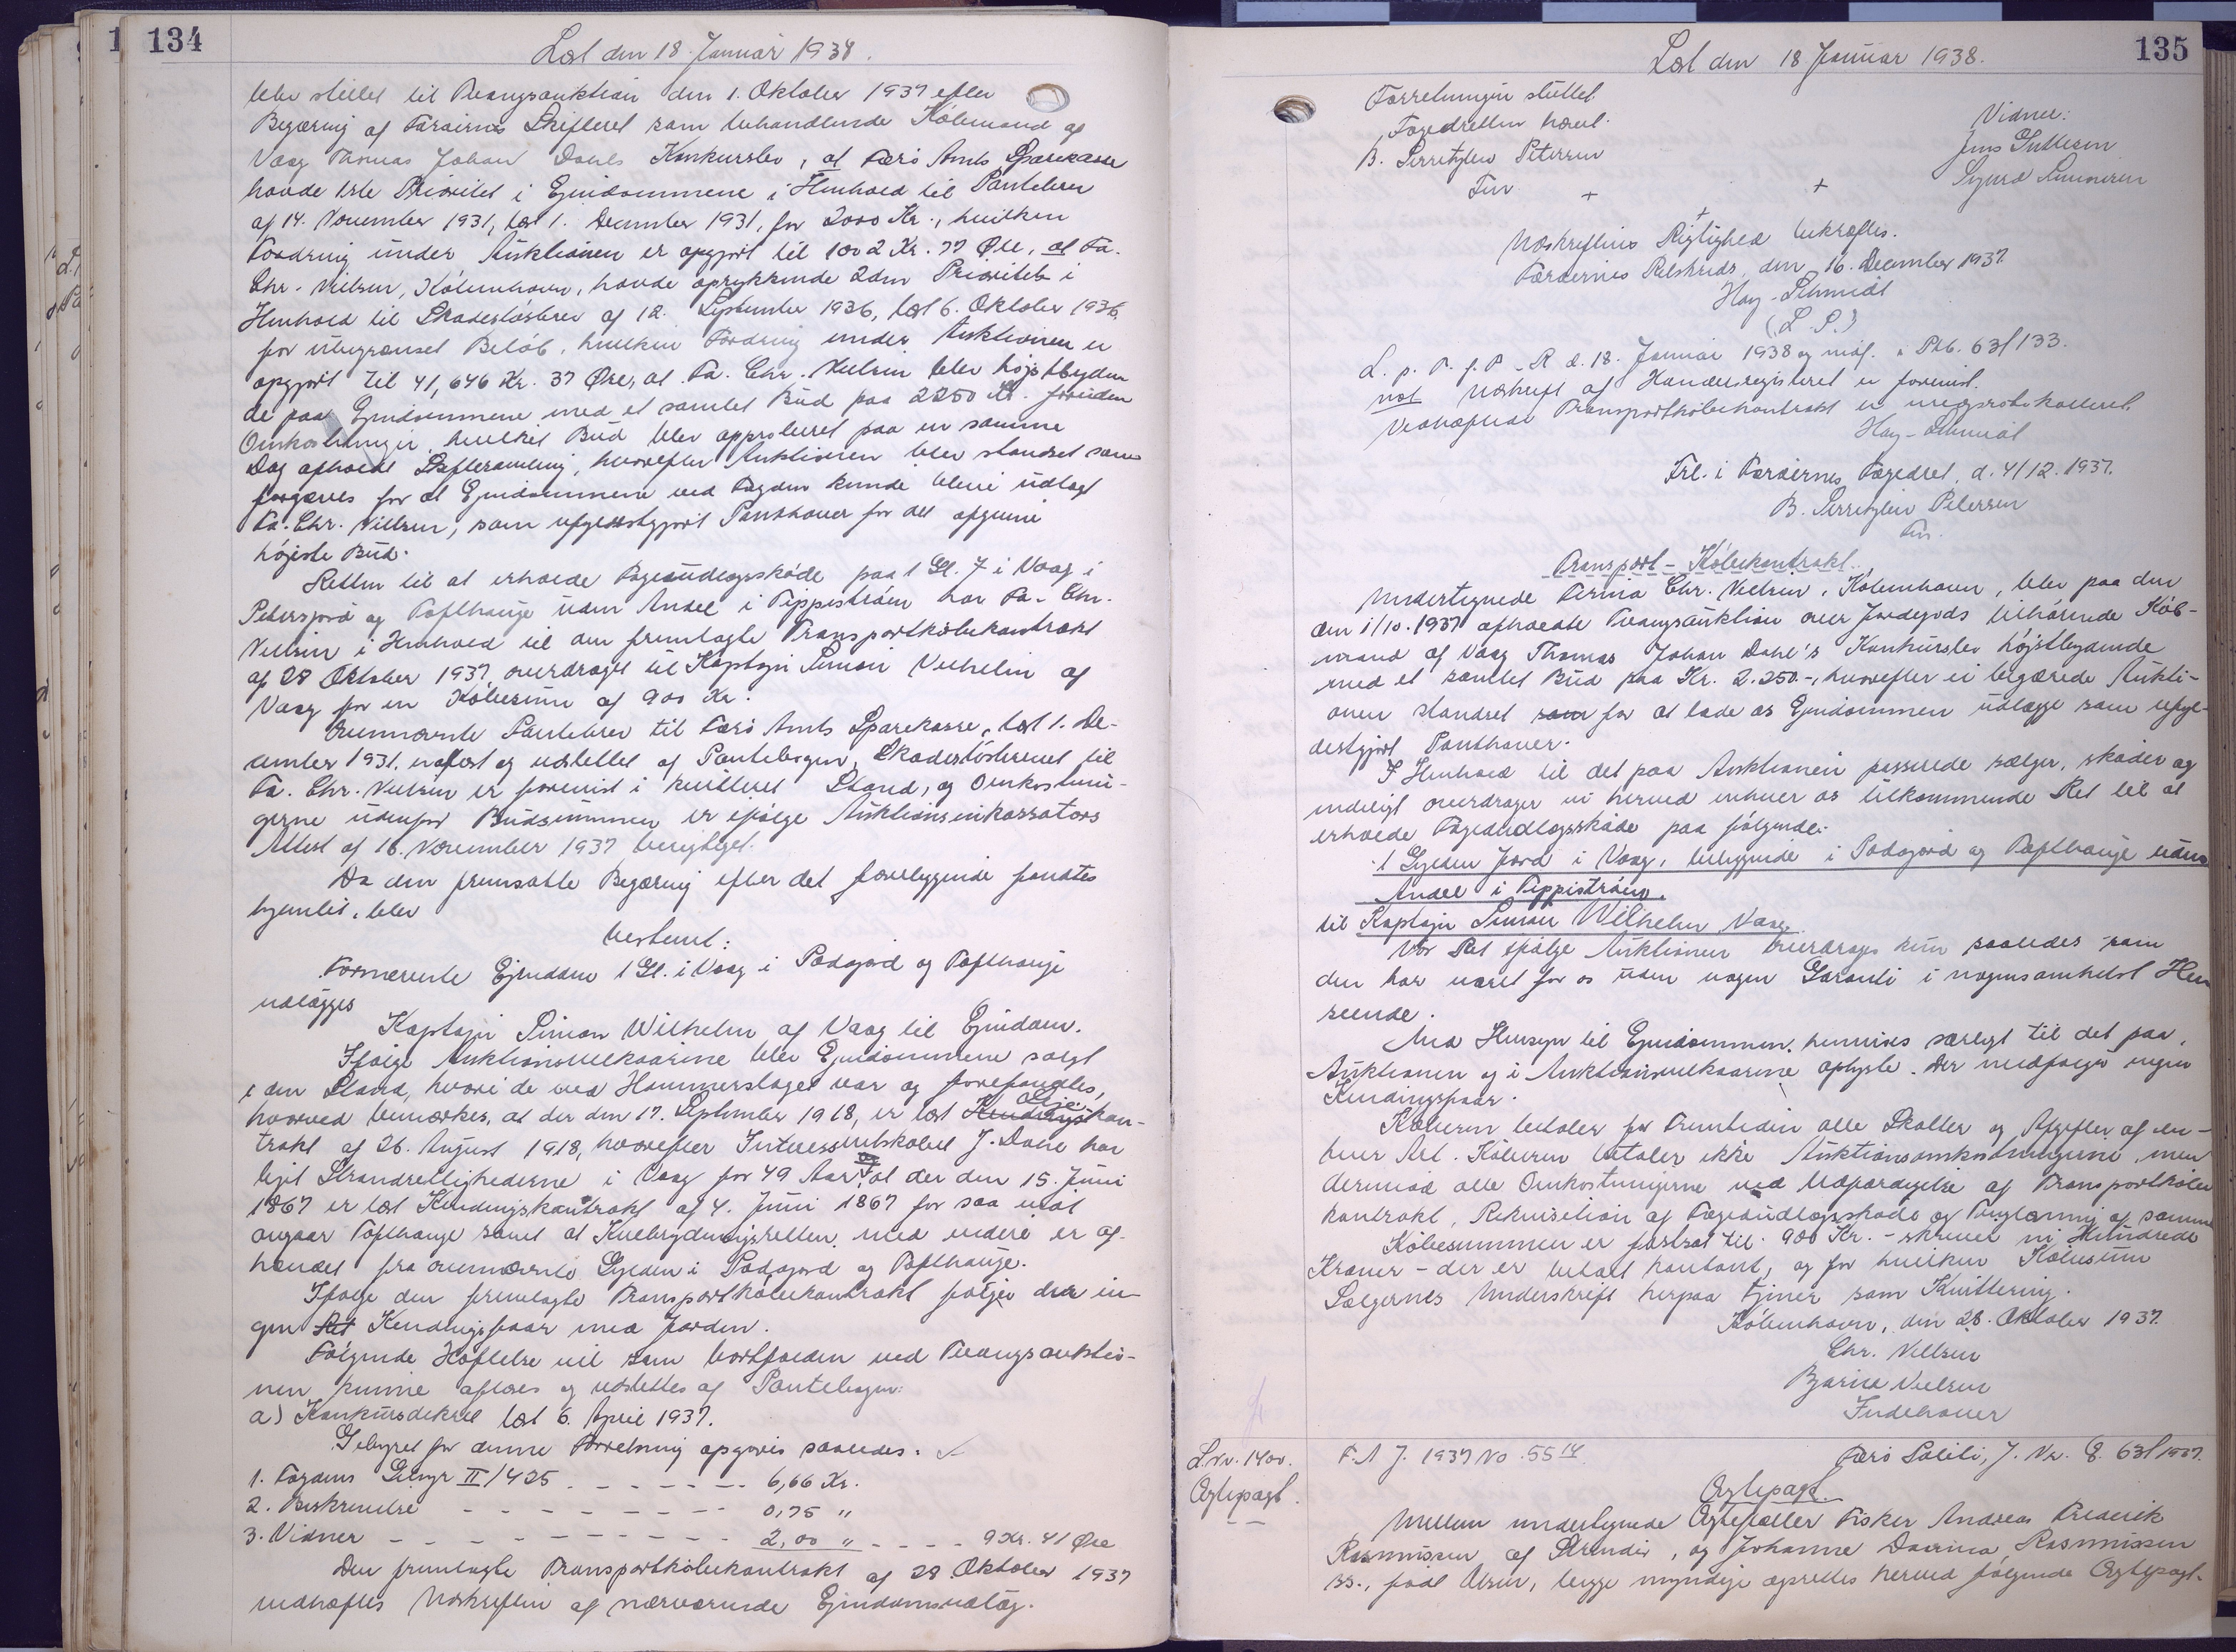 134
Læst den 18. Januar 1938.
blev stillet til Tvangsauktion den 1. Oktober 1937 efter
Begæring af Færøernes Skifteret som behandlende Købmand af
Vaag Thomas Johan Dahls Konkursbo, at Færø Amts Sparekasse
havde 1ste Prioritet i Ejendommene i Henhold til Pantebrev
af 14. November 1931, læst 1. December 1931, for 2000 Kr., hvilken
Fordring under Auktionen er opgjort til 1002 Kr. 77 Øre, at Fa.
Chr. Nielsen, København, havde oprykkende 2den Prioritet i
Henhold til Skadesløsbrev af 12. September 1936, læst 6. Oktober 1936,
for ubegrænset Beløb, hvilken Fordring under Auktionen er
opgjort til 41,646 Kr. 37 Øre, at Fa. Chr. Nielsen blev højstbyden
de paa Ejendommene med et samlet Bud paa 2250 Kr. foruden
Omkostninger, hvilket Bud blev approberet paa en samme
Dag afholdt Skiftesamling, hvorefter Auktionen blev standset som
forgæves for at Ejendommene ved Fogden kunde blive udlagt
Fa. Chr. Nielsen, som ufyldestgjort Panthaver for det afgivne
højeste Bud.
Retten til at erholde Fogedudlægsskøde paa 1 Gl. 7 i Vaag i
Pedersjord og Tofthauge uden Andel i Tippistrøm har Fa. Chr.
Nielsen i Henhold til den fremlagte Transportkøbekontrakt
af 28 Oktober 1937, overdraget til Kaptajn Simon Vilhelm af
Vaag for en Købesum af 900 Kr.
Ovennævnte Pantebrev til Færø Amts Sparekasse, læst 1. De-
cember 1931, er aflæst og udslettet af Pantebogen, Skadesløsbrevet til
Fa. Chr. Nielsen er forevist i kvitteret Stand, og Omkostnin-
gerne udenfor Budsummen er ifølge Auktionsinkassators
Attest af 16. November 1937 berigtiget.
Da den fremsatte Begæring efter det foreliggende fandtes
hjemlet, blev
bestemt:
Fornævnte Ejendom 1 Gl. i Vaag i Pødagjord og Tofthauge
udlægges
Kaptajn Simon Wilhelm af Vaag til Ejendom.
Ifølge Auktionsvilkaarene blev Ejendommene solgt
i den Stand, hvori de ved Hammerslaget var og forefandtes,
hvorved bemærkes, at der den 17. September 1918, er læst Leje-kon-
trakt af 26. August 1918, hvorefter Interessentskabet J. Dahl har
lejet Strandrettighederne i Vaag for 49 Aar, og at der den 15. Juni
1867 er læst Kendingskontrakt af 4. Juni 1867 for saa vidt
angaar Tofthauge samt at Knebrydningsretten med videre er af-
hændet fra ovennævnte Gylden i Pødagjord og Tofthauge.
Ifølge den fremlagte Transportkøbekontrakt følger der in-
gen Ret Kendingsfaar med Jorden.
Følgende Hæftelse vil som bortfalden ved Tvangsauktio-
nen kunne aflæses og udslettes af Pantebogen:
a) Konkursdekret læst 6. April 1937.
Gebyret for denne Forretning opgøres saaledes:
1. Fogdens Gebyr II/425 - - - - - - - 6,66 Kr.
2. Beskrivelse - - - - - - - - 0,75 "
3. Vidner - - - - - - - - - 2,00 " - - - - 9 Kr. 41 Øre
Den fremlagte Transportkøbekontrakt af 28 Oktober 1937
vedhæftes Udskriften af nærværende Ejendomsudlæg.
135
Læst den 18 Januar 1938.
Forretningen sluttet.
Fogedretten hævet.
B. Serritzlew Petersen
Fm.
Vidner:
Jens
Sigurd Simonsen
+ + +
Udskriftens Rigtighed bekræftes.
Færøernes Retskreds, den 16. December 1937.
Hay-Schmidt
(L. S.)
L. p. T. f. P. R. d. 18. Januar 1938 og indf. i Ptb. 63f 133.
not Udskrift af Handelsregisteret er forevist.
Vedhæftede Transportkøbekontrakt er medprotokolleret.
Hay-Schmidt
Frl. i Færøernes Fogedret, d. 4/12. 1937.
B. Serritzlew Petersen
Fm.
Transport - Købekontrakt.
Undertegnede Firma Chr. Nielsen, København, blev paa den
den 1/10. 1937 afholdte Tvangsauktion over Jordegods tilhørende Køb-
mand af Vaag Thomas Johan Dahl's Konkursbo højstbydende
med et samlet Bud paa Kr. 2.250.-, hvorefter vi begærede Aukti-
onen standset som for at lade os Ejendommen udlægge som ufyl-
destgjort Panthaver.
I Henhold til det paa Auktionen passerede sælger, skøder og
endeligt overdrager vi herved enhver os tilkommende Ret til at
erholde Fogedudlægsskøde paa følgende:
1 Gylden Jord i Vaag, beliggende i Pødagjord og Tofthauge uden
Andel i Tippistrøm.
til Kaptajn Simon Wilhelm, Vaag.
Vor Ret ifølge Auktionen overdrages kun saaledes som
den har været for os uden nogen Garanti i nogensomhelst Hen
seende.
Med Hensyn til Ejendommen, henvises særligt til det paa
Auktionen og i Auktionsvilkaarene oplyste. Der medfølger ingen
Kendingsfaar.
Køberen betaler for Fremtiden alle Skatter og Afgifter af en-
hver Art. Køberen betaler ikke Auktionsomkostningerne, men
derimod alle Omkostningerne ved Udfærdigelse af Transportkøbe
kontrakt, Rekvisition af Fogedudlægsskøde og Tinglæsning af samme
Købesummen er fastsat til 900 Kr. - skriver ni Hundrede
Kroner - der er betalt kontant, og for hvilken Købesum
Sælgernes Underskrift herpaa tjener som Kvittering.
København, den 28. Oktober 1937.
Chr. Nielsen
Bjarne Nielsen
Indehaver
L. nr. 1400.
Ægtepagt.
F. A J. 1937 No. 55
Færø Politi, J. Nr. 8. 63/1937.
Ægtepagt.
Mellem undertegnede Ægtefæller Fisker Andreas Frederik
Rasmussen af Strender, og Johanne Rasmussen
ss., født Olsen, begge myndige oprettes herved følgende Ægtepagt.